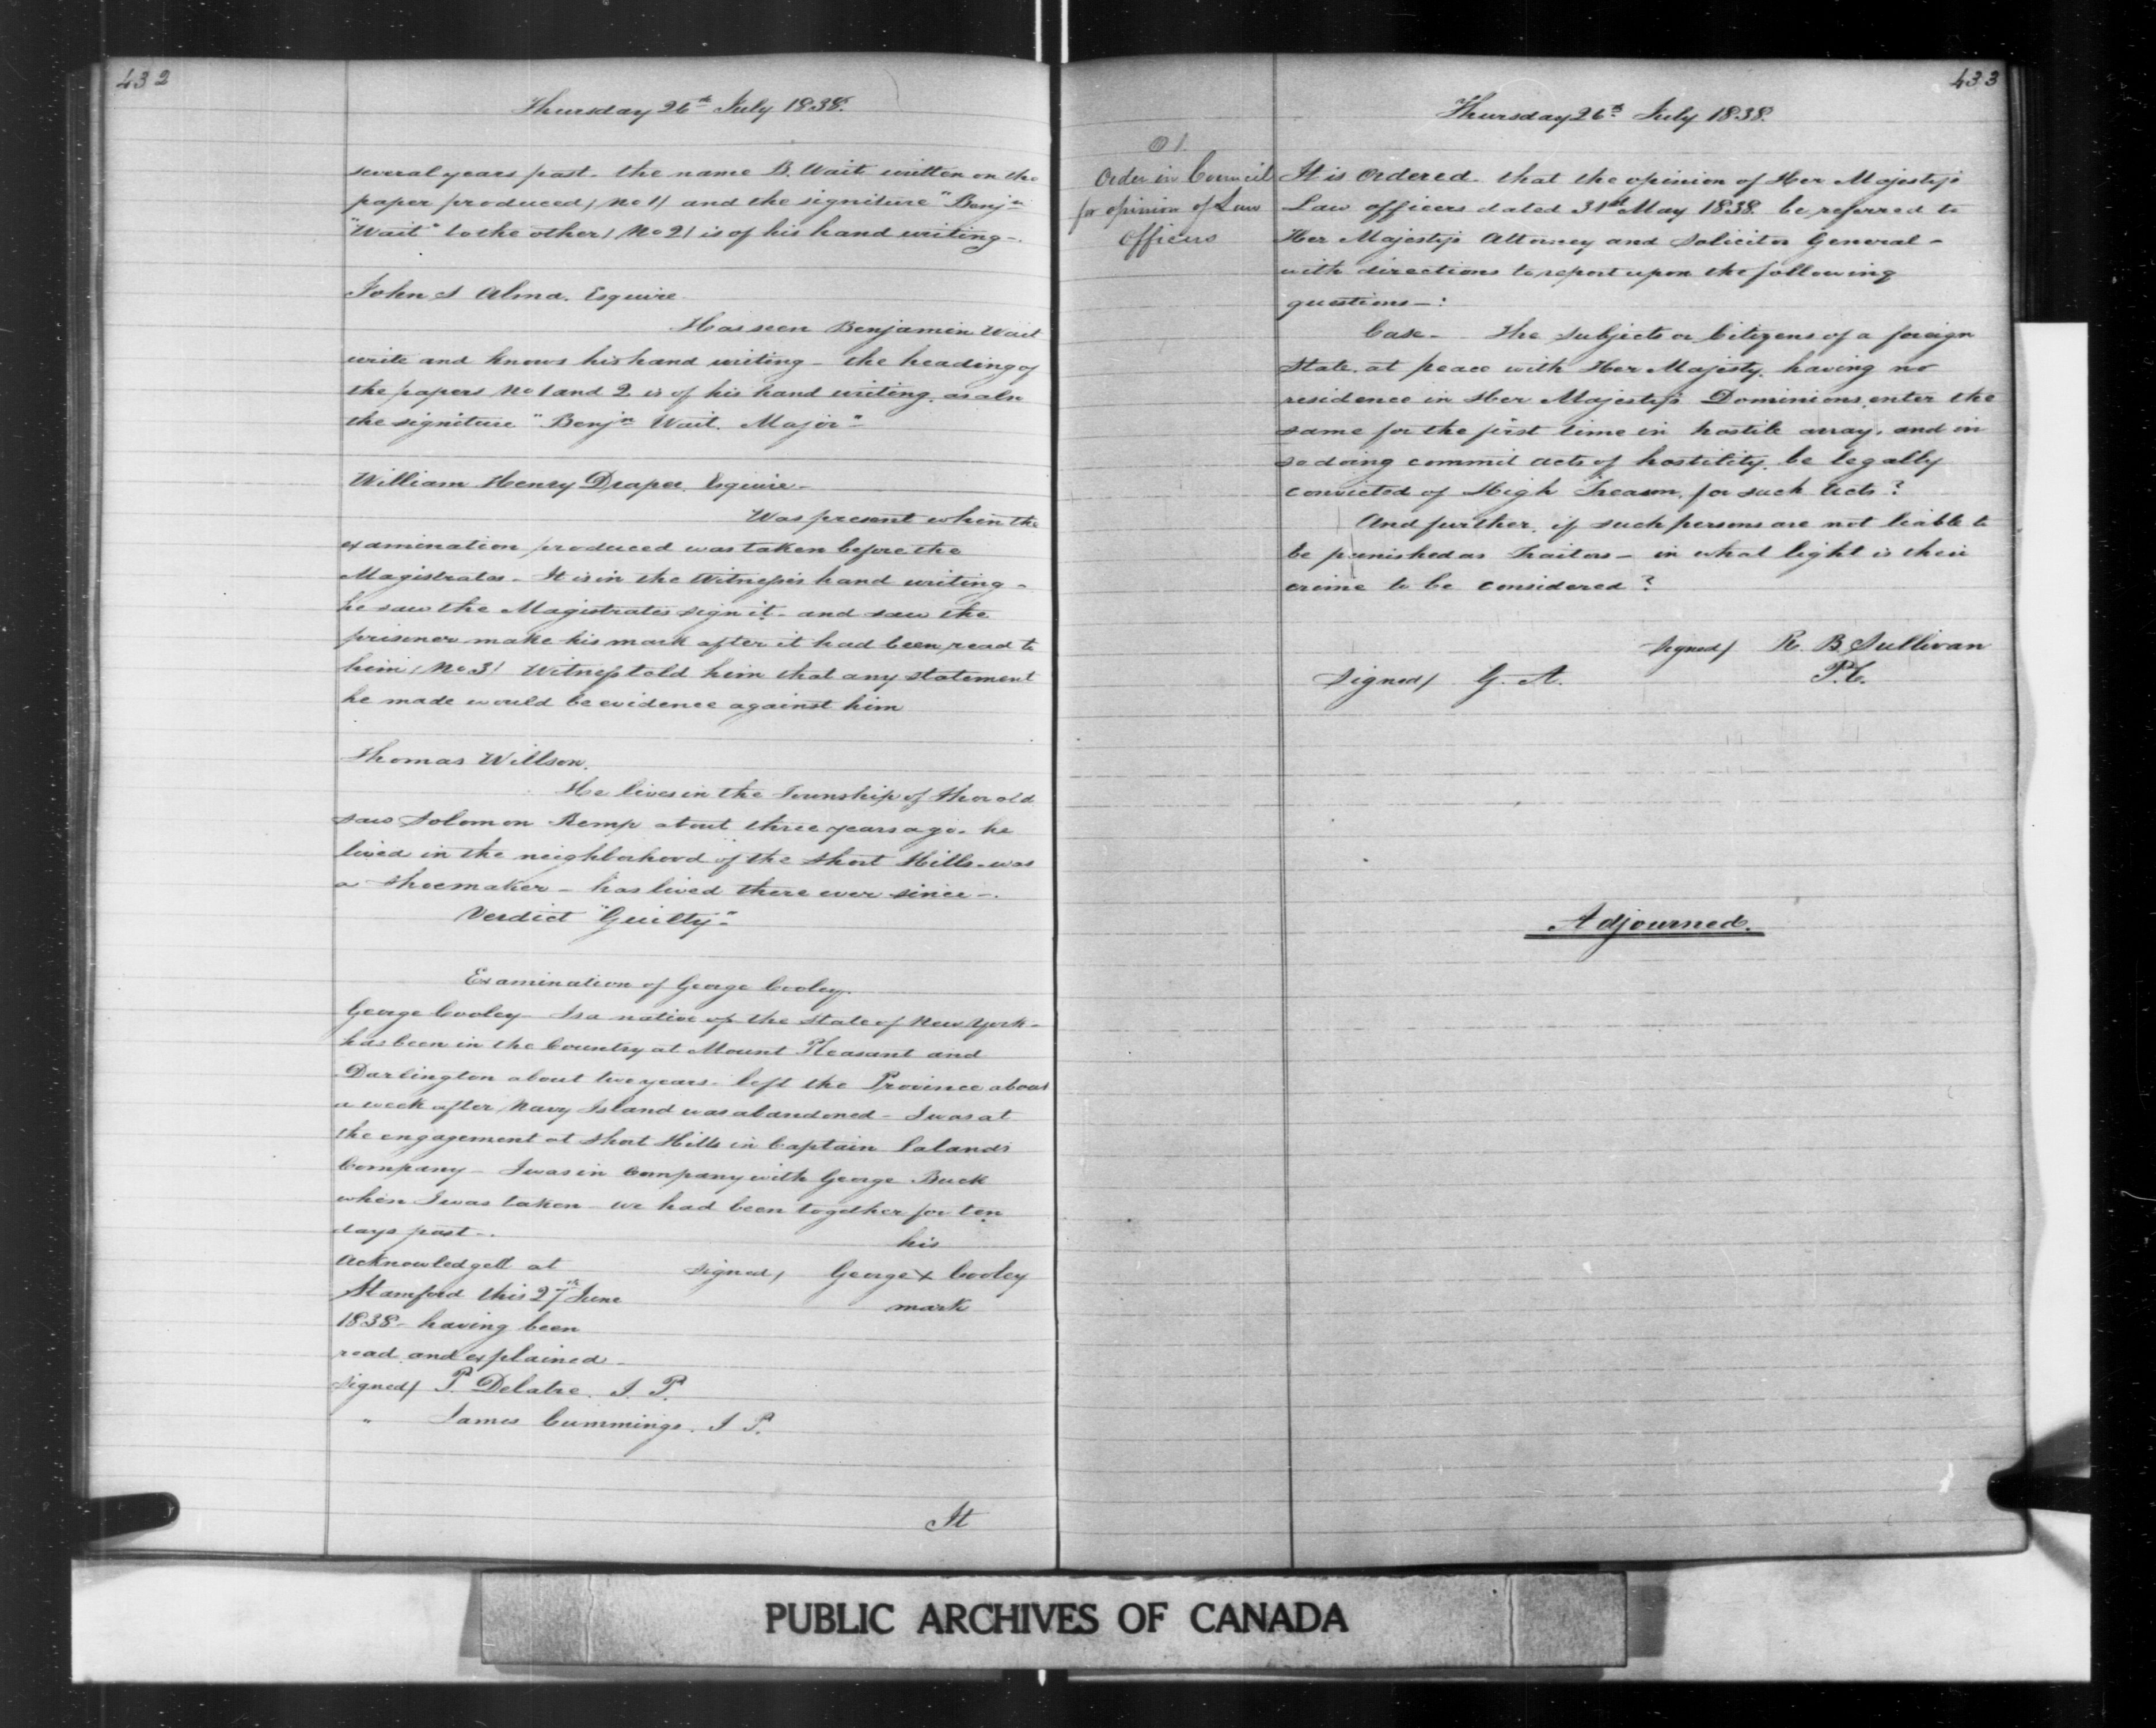 432
Thursday 26th July 1838.
several years past. the name B. Wait written on the
paper produced (No 1) and the signiture "Benjn
"Wait" to the other (No 2) is of his hand writing -.
John S Alma. Esquire.
Has seen Benjamin Wait
write and knows his hand writing - the heading of
the papers No 1 and 2 is of his hand writing. as also
the signiture "Benjn Wait. Major"-
William Henry Draper. Esquire -
Was present when the
examination produced was taken before the
Magistrates - It is in the Witness's hand writing -
he saw the Magistrates sign it - and saw the
prisoner make his mark after it had been read to
him (No 3) Witness told him that any statement
he made would be evidence against him
Thomas Willson.
He lives in the Township of Thorold
saw Solomon Kemp about three years ago. he
lived in the neighborhood of the Short Hills. was
a shoemaker - has lived there ever since -.
Verdict "Guilty"-
Examination of George Cooley.
George Cooley - Is a native of the State of New York -
has been in the Country at Mount Pleasant and
Darlington about two years - left the Province about
a week after Navy Island was abandoned - I was at
the engagement at Short Hills in Captain
Company - I was in company with George Buck
when I was taken - we had been together for ten
days past -.
his
Acknowledged at signed) George X Cooley
Stamford this 27th June mark
1838 - having been
read and explained -
signed) P. Delatre. J. P.
" James Cummings. J P.
It
433
Thursday 26th July 1838.
Order in Council
for opinion of Law
Officers
It is Ordered. that the opinion of Her Majesty's
Law officers dated 31st May 1838. be referred to
Her Majesty's Attorney and Solicitor General -
with directions to report upon the following
questions -:
Case - The Subjects or Citizens of a foreign
State. at peace with Her Majesty. having no
residence in Her Majesty's Dominions. enter the
same for the first time in hostile array. and in
so doing commit acts of hostility. be legally
convicted of High Treason. for such Acts?
And further. if such persons are not liable to
be punished as Traitors - in what light is their
crime to be considered?
signed) R. B. Sullivan
P.C.
Signed) G. A.
Adjourned.
PUBLIC ARCHIVES OF CANADA